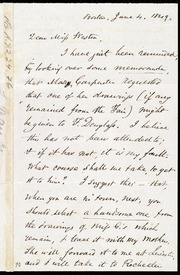 Boston, June 4, 1849.
Dear Miss Weston,
I have just been reminded,
by looking over some memoranda
that Mary Carpenter requested
that one of her drawings (if any
remained from the Fair) might
be given to F. Douglass. I believe
this has not been attended to;
& if it has not, it is my fault.
What course shall we take, to get
it to him? I suggest this — that
when you are in town, next, you
should select a handsome one from
the drawings of Miss C.'s which
remain, & leave it with my mother.
She will forward it to me at
and I will take it to Rochester